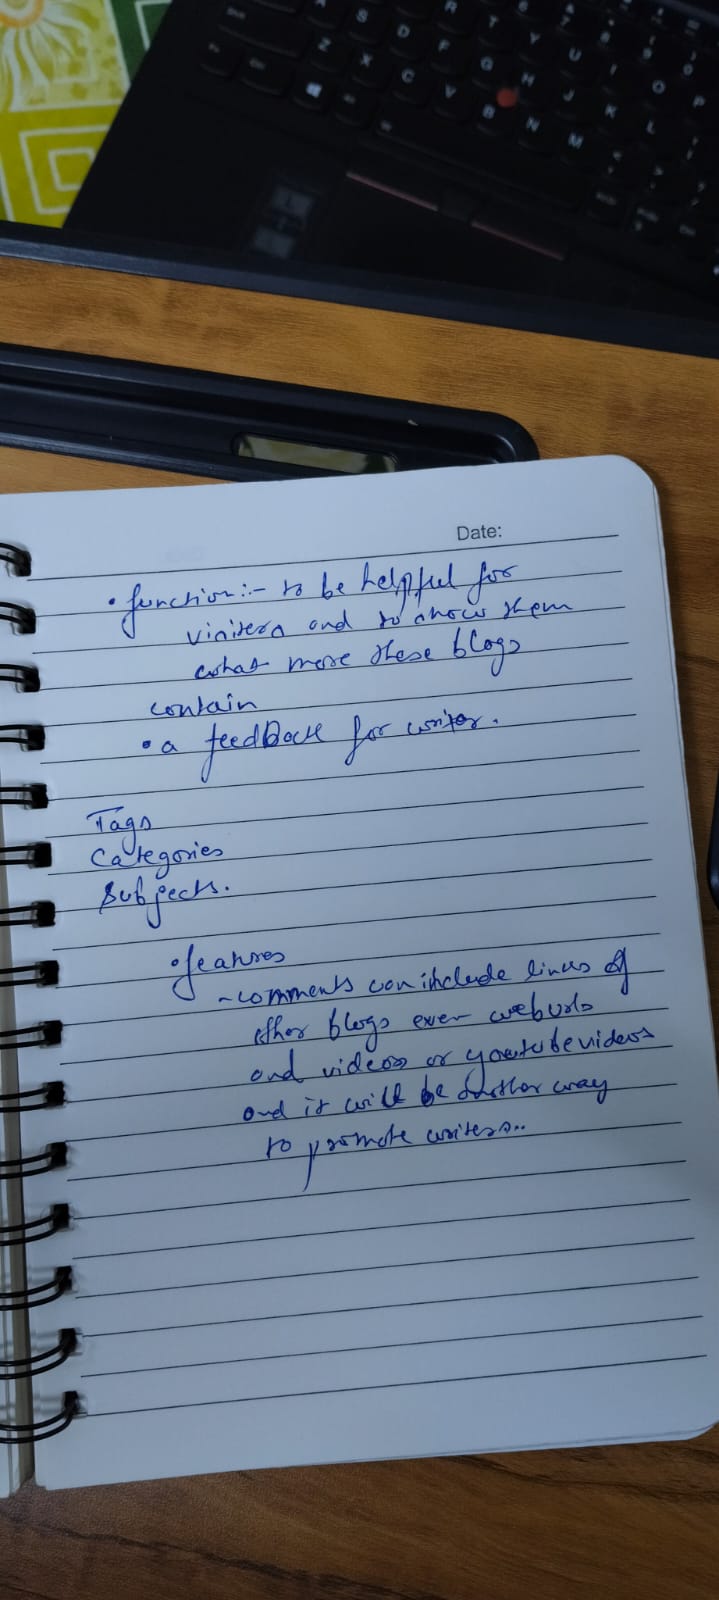 Date:
• function:- to be helpful for
visiters and to show them
what more these blogs
contain
• a feedback for writer.
Tags
Categories
Subjects.
• features
- comments can include links of
other blogs even weburls
and videos or youtube videos
and it will be another way
to promote writers..